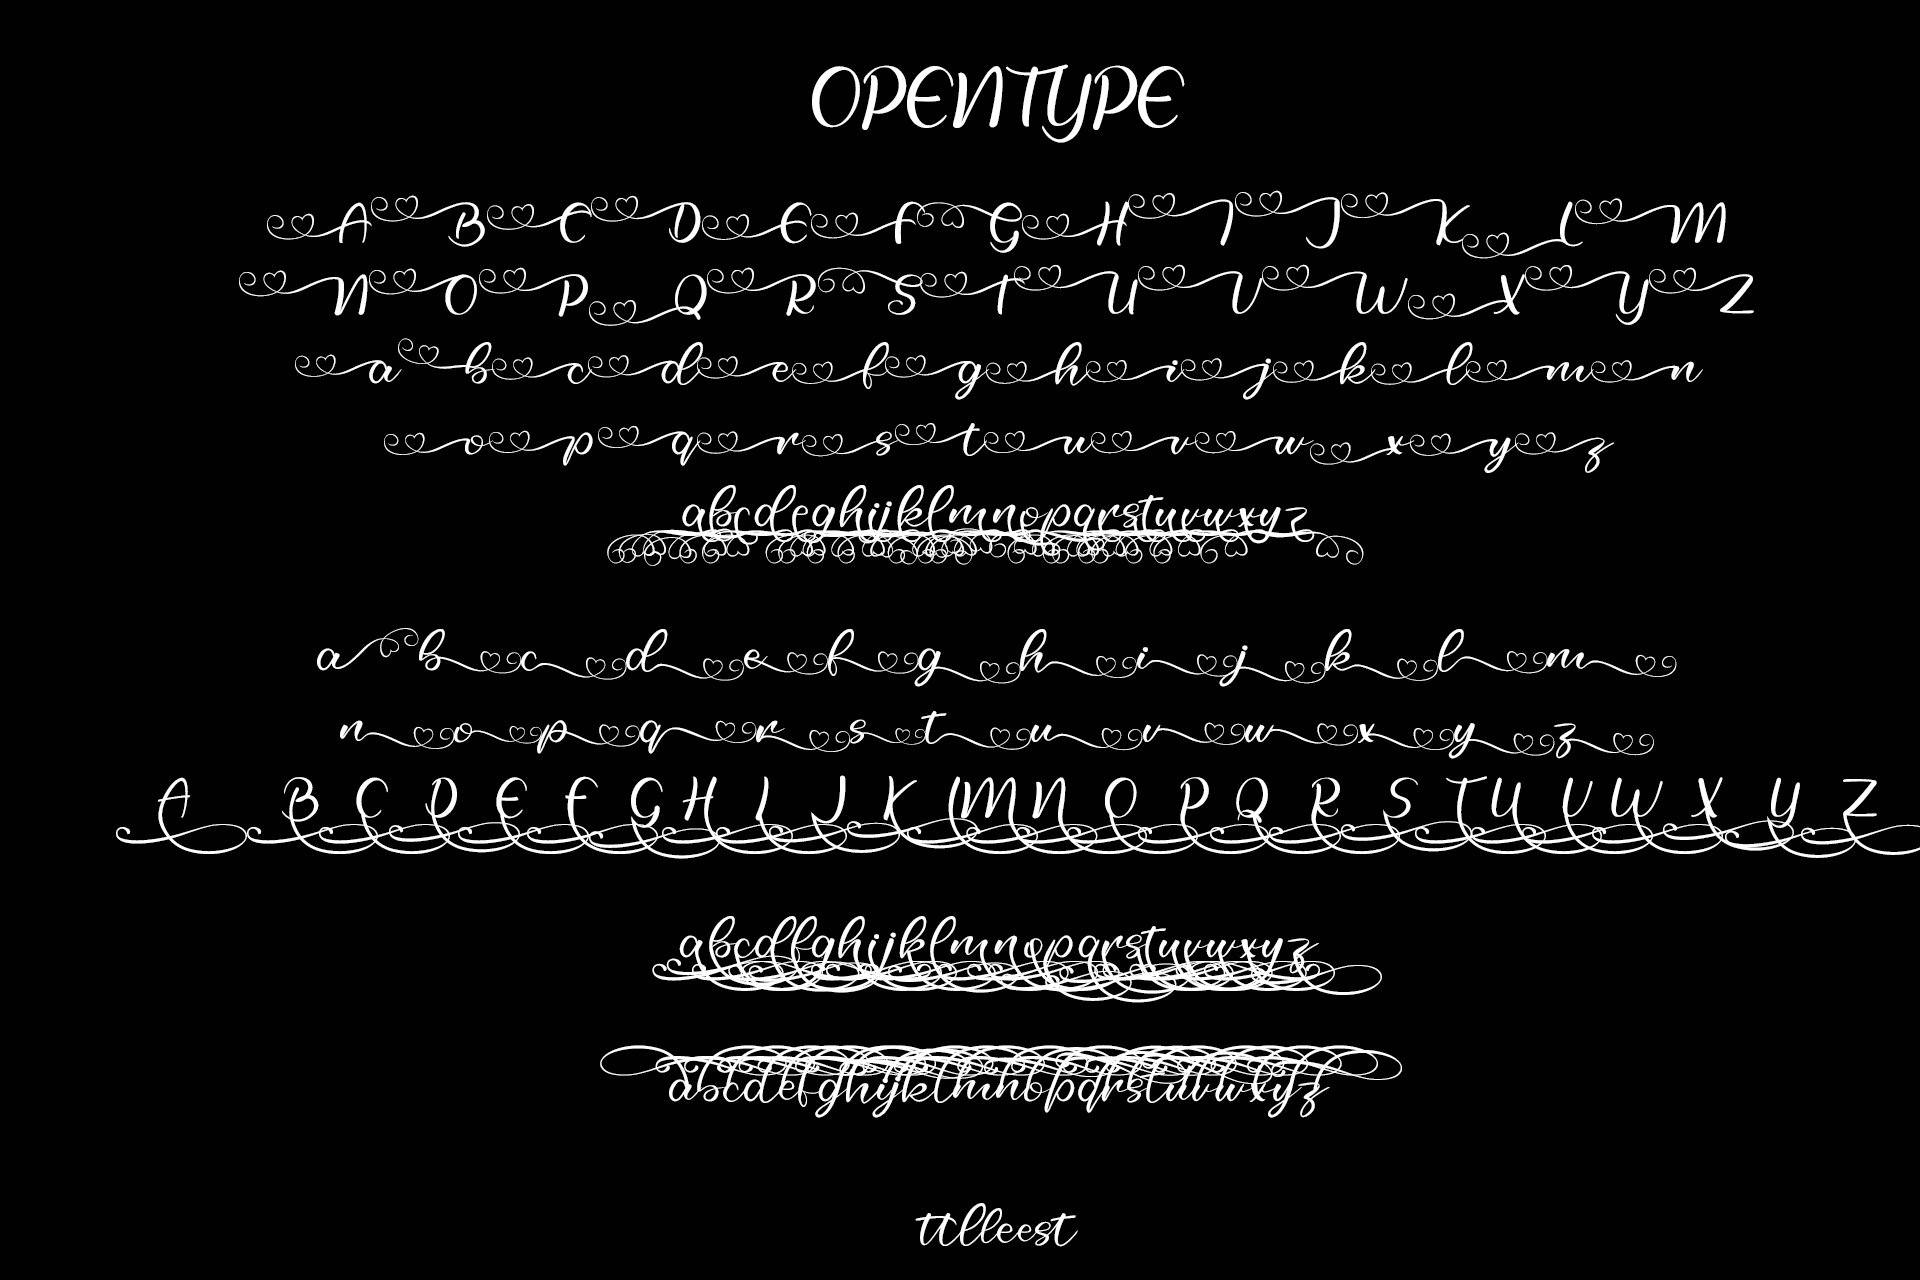 OPENTYPE
A B C D E F G H I J K L M
N O P Q R S T U V W X Y Z
a b c d e f g h i j k l m n
o p q r s t u v w x y z
abcdeghijklmnopqrstuvwxyz
a b c d e f g h i j k l m
n o p q r s t u v w x y z
A B C D E F G H I J K L M N O P Q R S T U V W X Y Z
abcdfghijklmnopqrstuvwxyz
abcdefghijklmnopqrstuvwxyz
ttlleest